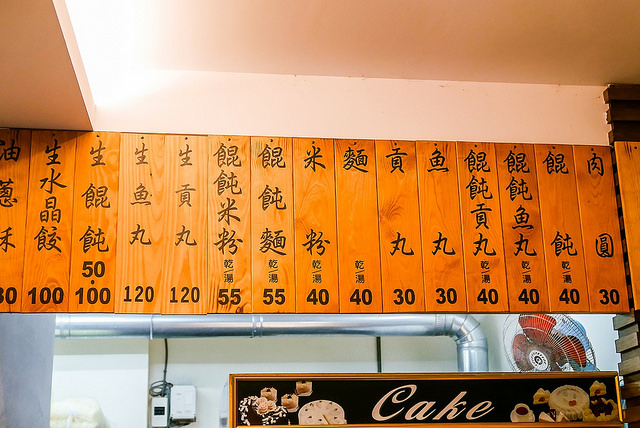 肉圓 30
餛飩 乾湯 40
餛飩魚丸 乾湯 40
餛飩貢丸 乾湯 40
魚丸 30
貢丸 30
麵 乾湯 40
米粉 乾湯 40
餛飩麵 乾湯 55
餛飩米粉 乾湯 55
生貢丸 120
生魚丸 120
生餛飩 50·100
生水晶餃 100
油蔥
Cake